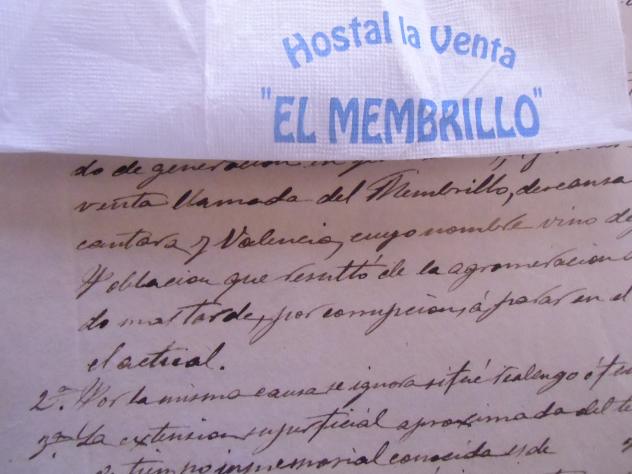 Hostal la Venta
"EL MEMBRILLO"
do de generacion en
venta llamada del Membrillo, descansa
cantara y Valencia, cuyo nombre vino de
Poblacion que resultó de la agromeracion
do mas tarde, por corrupcion, á parar en el
el actual.
2ª. Por la misma causa se ignora si fué realengo ó
3ª. La extension superficial aproximada del te
tiempo inmemorial conocida es de